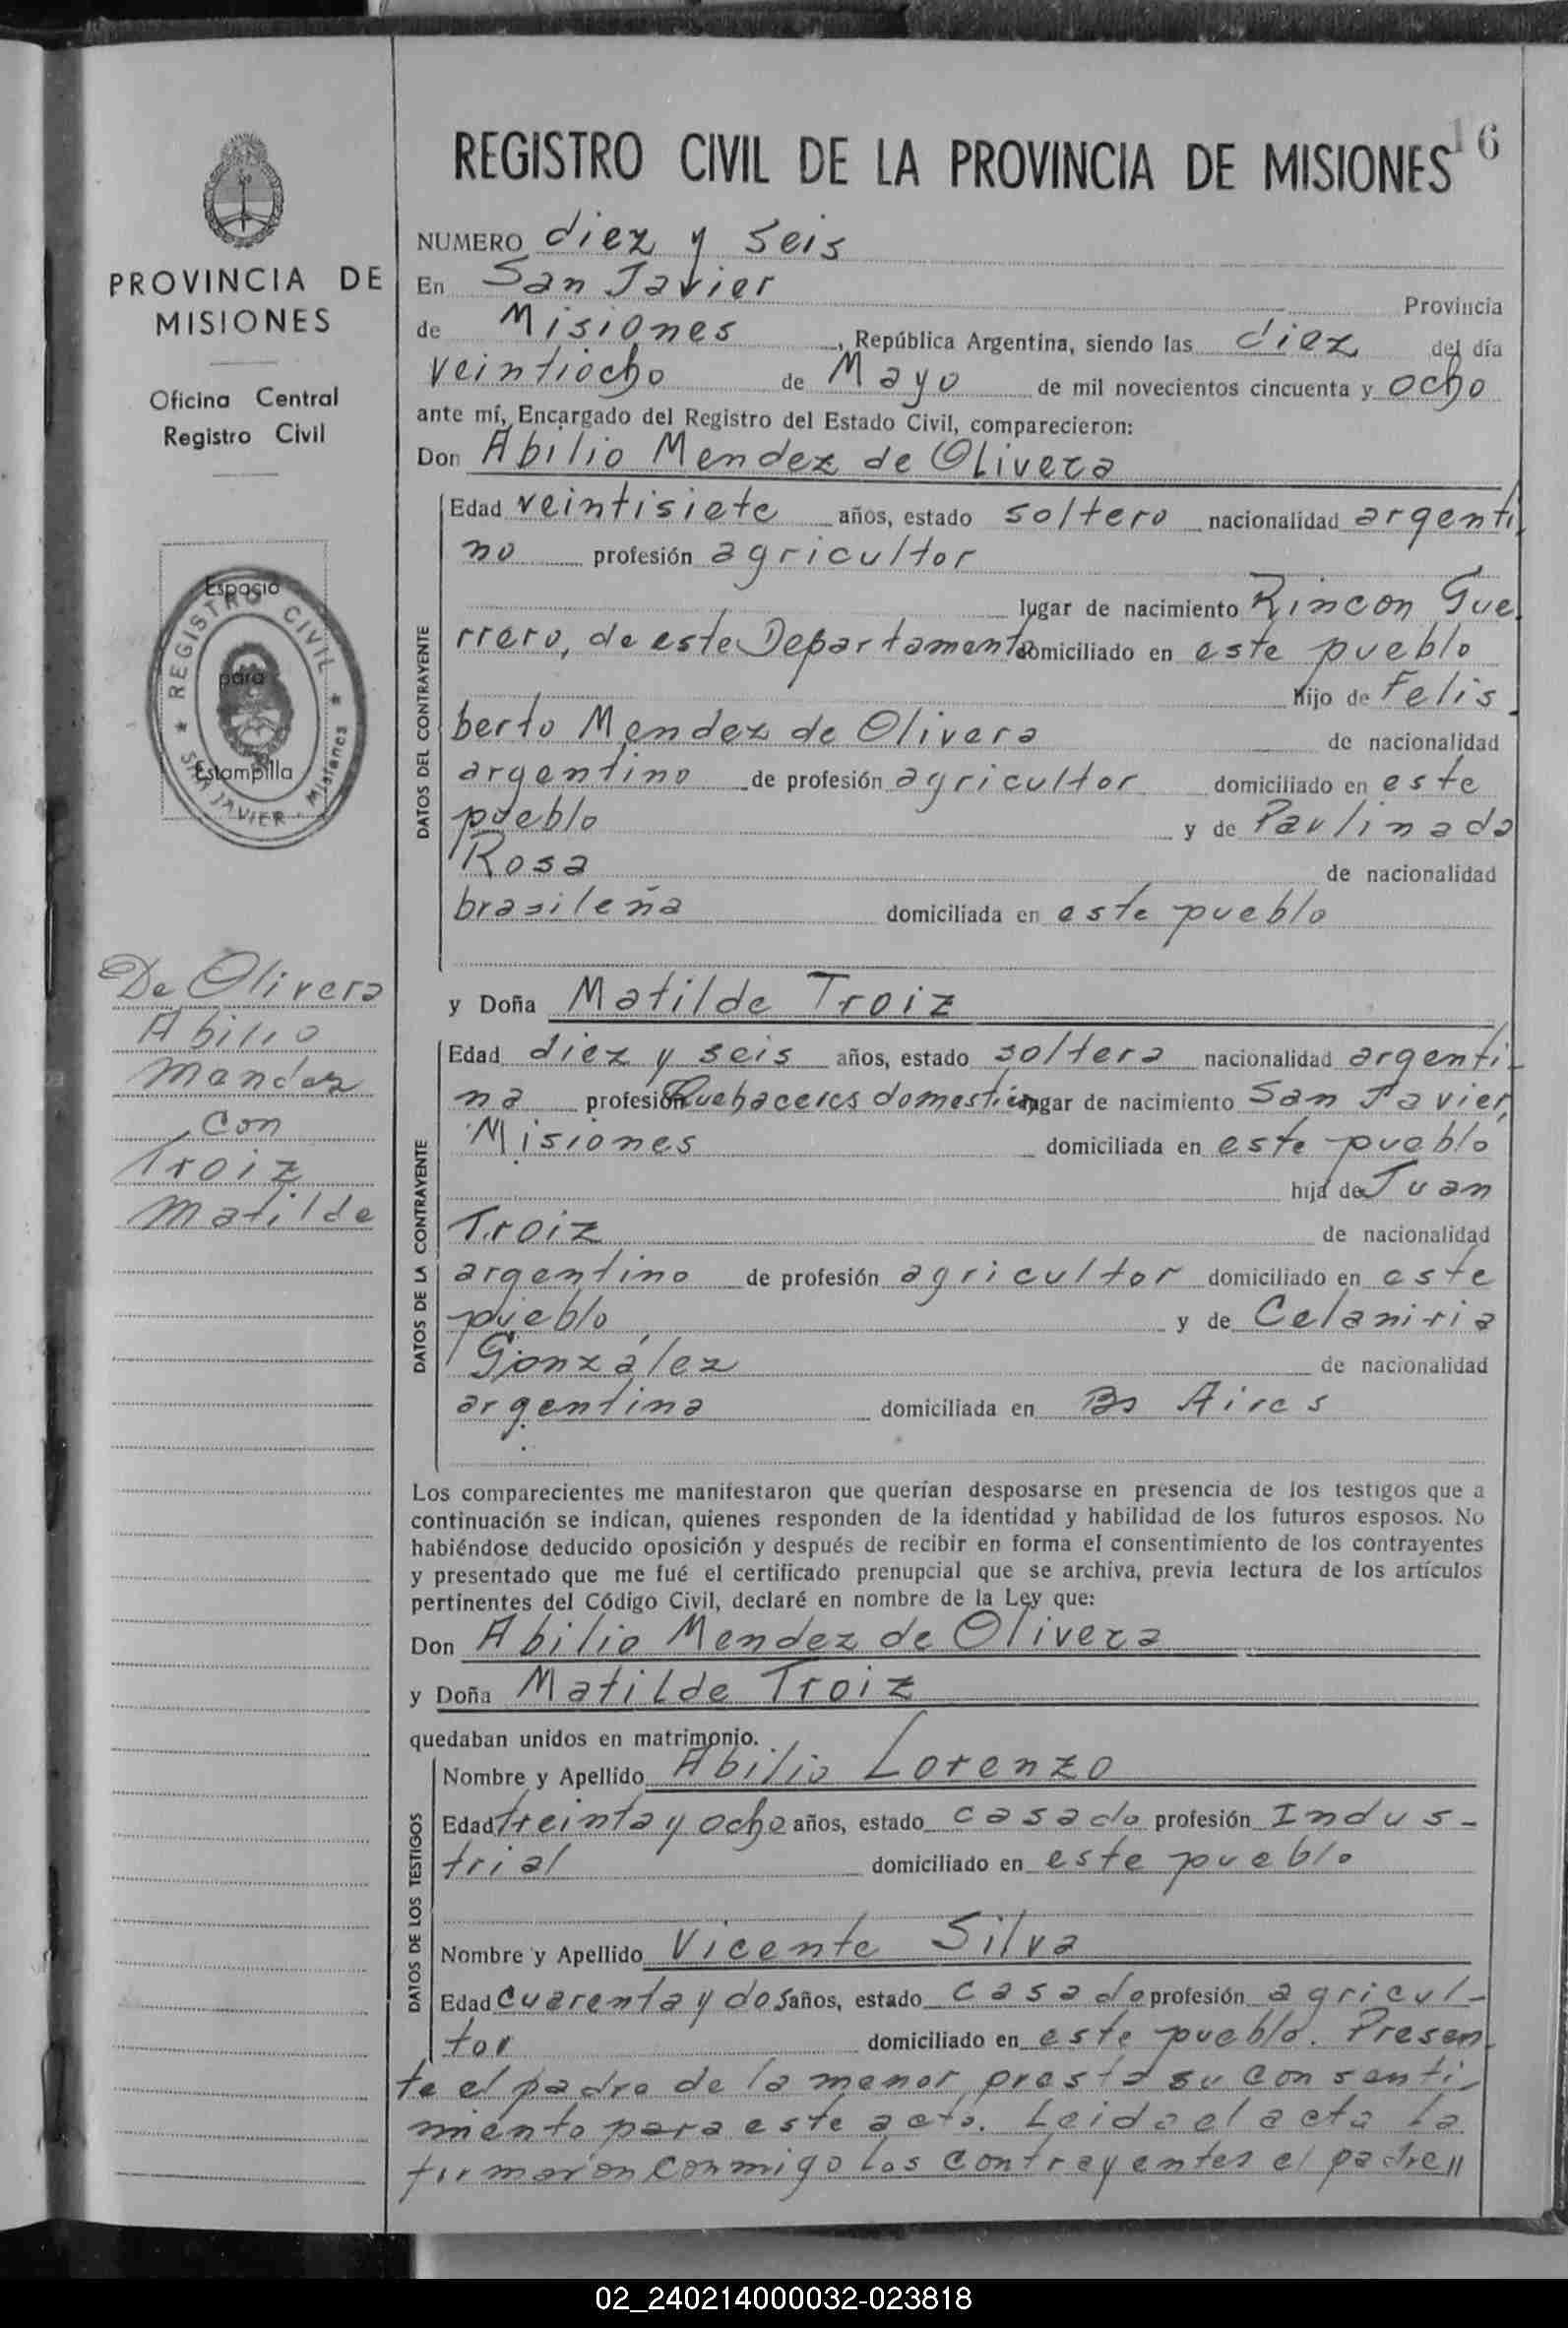 REGISTRO CIVIL DE LA PROVINCIA DE MISIONES 16
PROVINCIA DE
MISIONES
Oficina Central
Registro Civil
Espacio
para
Estampilla
REGISTRO CIVIL
SAN JAVIER - Misiones
De Olivera
Abilio
Mendez
con
Troiz
Matilde
NUMERO diez y seis
En San Javier Provincia
de Misiones, República Argentina, siendo las diez del día
veintiocho de Mayo de mil novecientos cincuenta y ocho
ante mí, Encargado del Registro del Estado Civil, comparecieron:
Don Abilio Mendez de Olivera
DATOS DEL CONTRAYENTE
Edad veintisiete años, estado soltero nacionalidad argenti
no profesión agricultor
lugar de nacimiento Rincon Gue
rrero, de este Departamento domiciliado en este pueblo
hijo de Felis
berto Mendez de Olivera de nacionalidad
argentino de profesión agricultor domiciliado en este
pueblo y de Paulina da
Rosa de nacionalidad
brasileña domiciliada en este pueblo
y Doña Matilde Troiz
DATOS DE LA CONTRAYENTE
Edad diez y seis años, estado soltera nacionalidad argenti-
na profesión Quehaceres domesticos lugar de nacimiento San Javier,
Misiones domiciliada en este pueblo
hija de Juan
Troiz de nacionalidad
argentino de profesión agricultor domiciliado en este
pueblo y de
González de nacionalidad
argentina domiciliada en Bs Aires
Los comparecientes me manifestaron que querían desposarse en presencia de los testigos que a
continuación se indican, quienes responden de la identidad y habilidad de los futuros esposos. No
habiéndose deducido oposición y después de recibir en forma el consentimiento de los contrayentes
y presentado que me fué el certificado prenupcial que se archiva, previa lectura de los artículos
pertinentes del Código Civil, declaré en nombre de la Ley que:
Don Abilio Mendez de Olivera
y Doña Matilde Troiz
quedaban unidos en matrimonio.
DATOS DE LOS TESTIGOS
Nombre y Apellido Abilio Lorenzo
Edad treinta y ocho años, estado casado profesión Indus-
trial domiciliado en este pueblo
Nombre y Apellido Vicente Silva
Edad cuarenta y dos años, estado casado profesión agricul-
tor domiciliado en este pueblo. Presen-
te el padre de la menor presta su consenti-
miento para este acto. Leida el acta la
firmaron conmigo los contrayentes el padre //
02_240214000032-023818